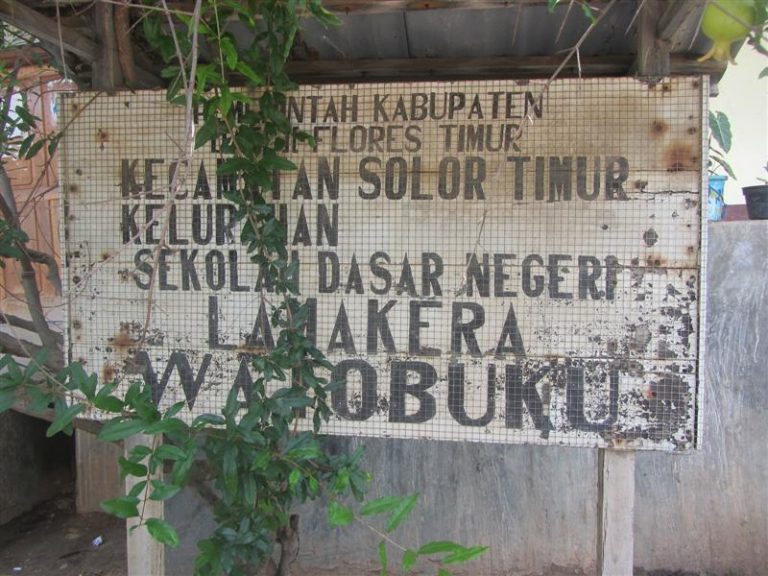 PEMERINTAH KABUPATEN
FLORES TIMUR
KECAMATAN SOLOR TIMUR
KELURAHAN
SEKOLAH DASAR NEGERI
LAMAKERA
WATOBUKU